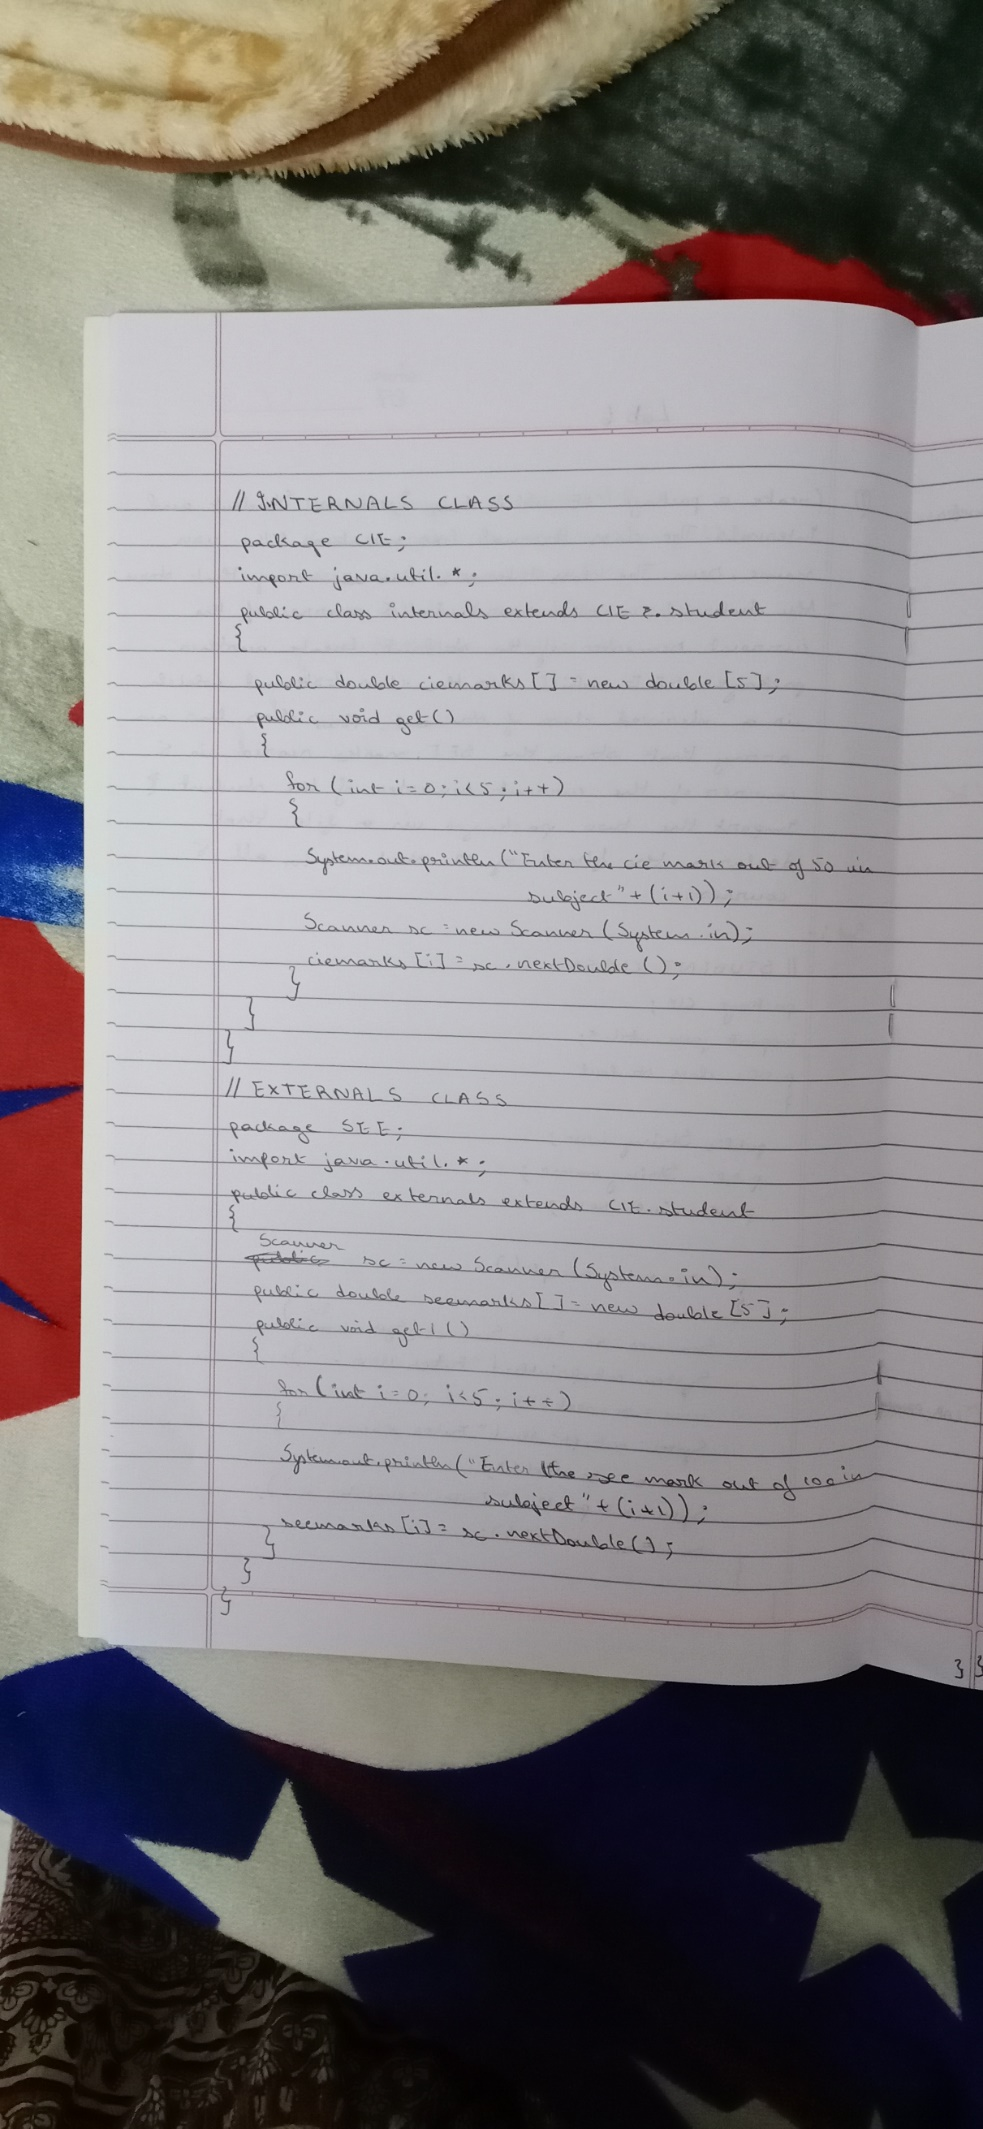 // INTERNALS CLASS
package CIE;
import java.util.*;
public class internals extends CIE . student
{
public double ciemarks[] = new double [5];
public void get()
{
for (int i=0; i<5; i++)
{
System.out.println("Enter the cie mark out of 50 in
subject" + (i+1));
Scanner sc = new Scanner (System.in);
ciemarks [i] = sc.nextDoulde ();
}
}
}
// EXTERNALS CLASS
package SEE;
import java.util.*;
public class externals extends CIE.student
{
Scanner
public sc = new Scanner (System.in);
public double seemarks[] = new double [5];
public void get1()
{
for (int i=0; i<5; i++)
{
System.out.println("Enter the see mark out of 100 in
subject" + (i+1));
seemarks [i] = sc.nextDouble();
}
}
}
} }